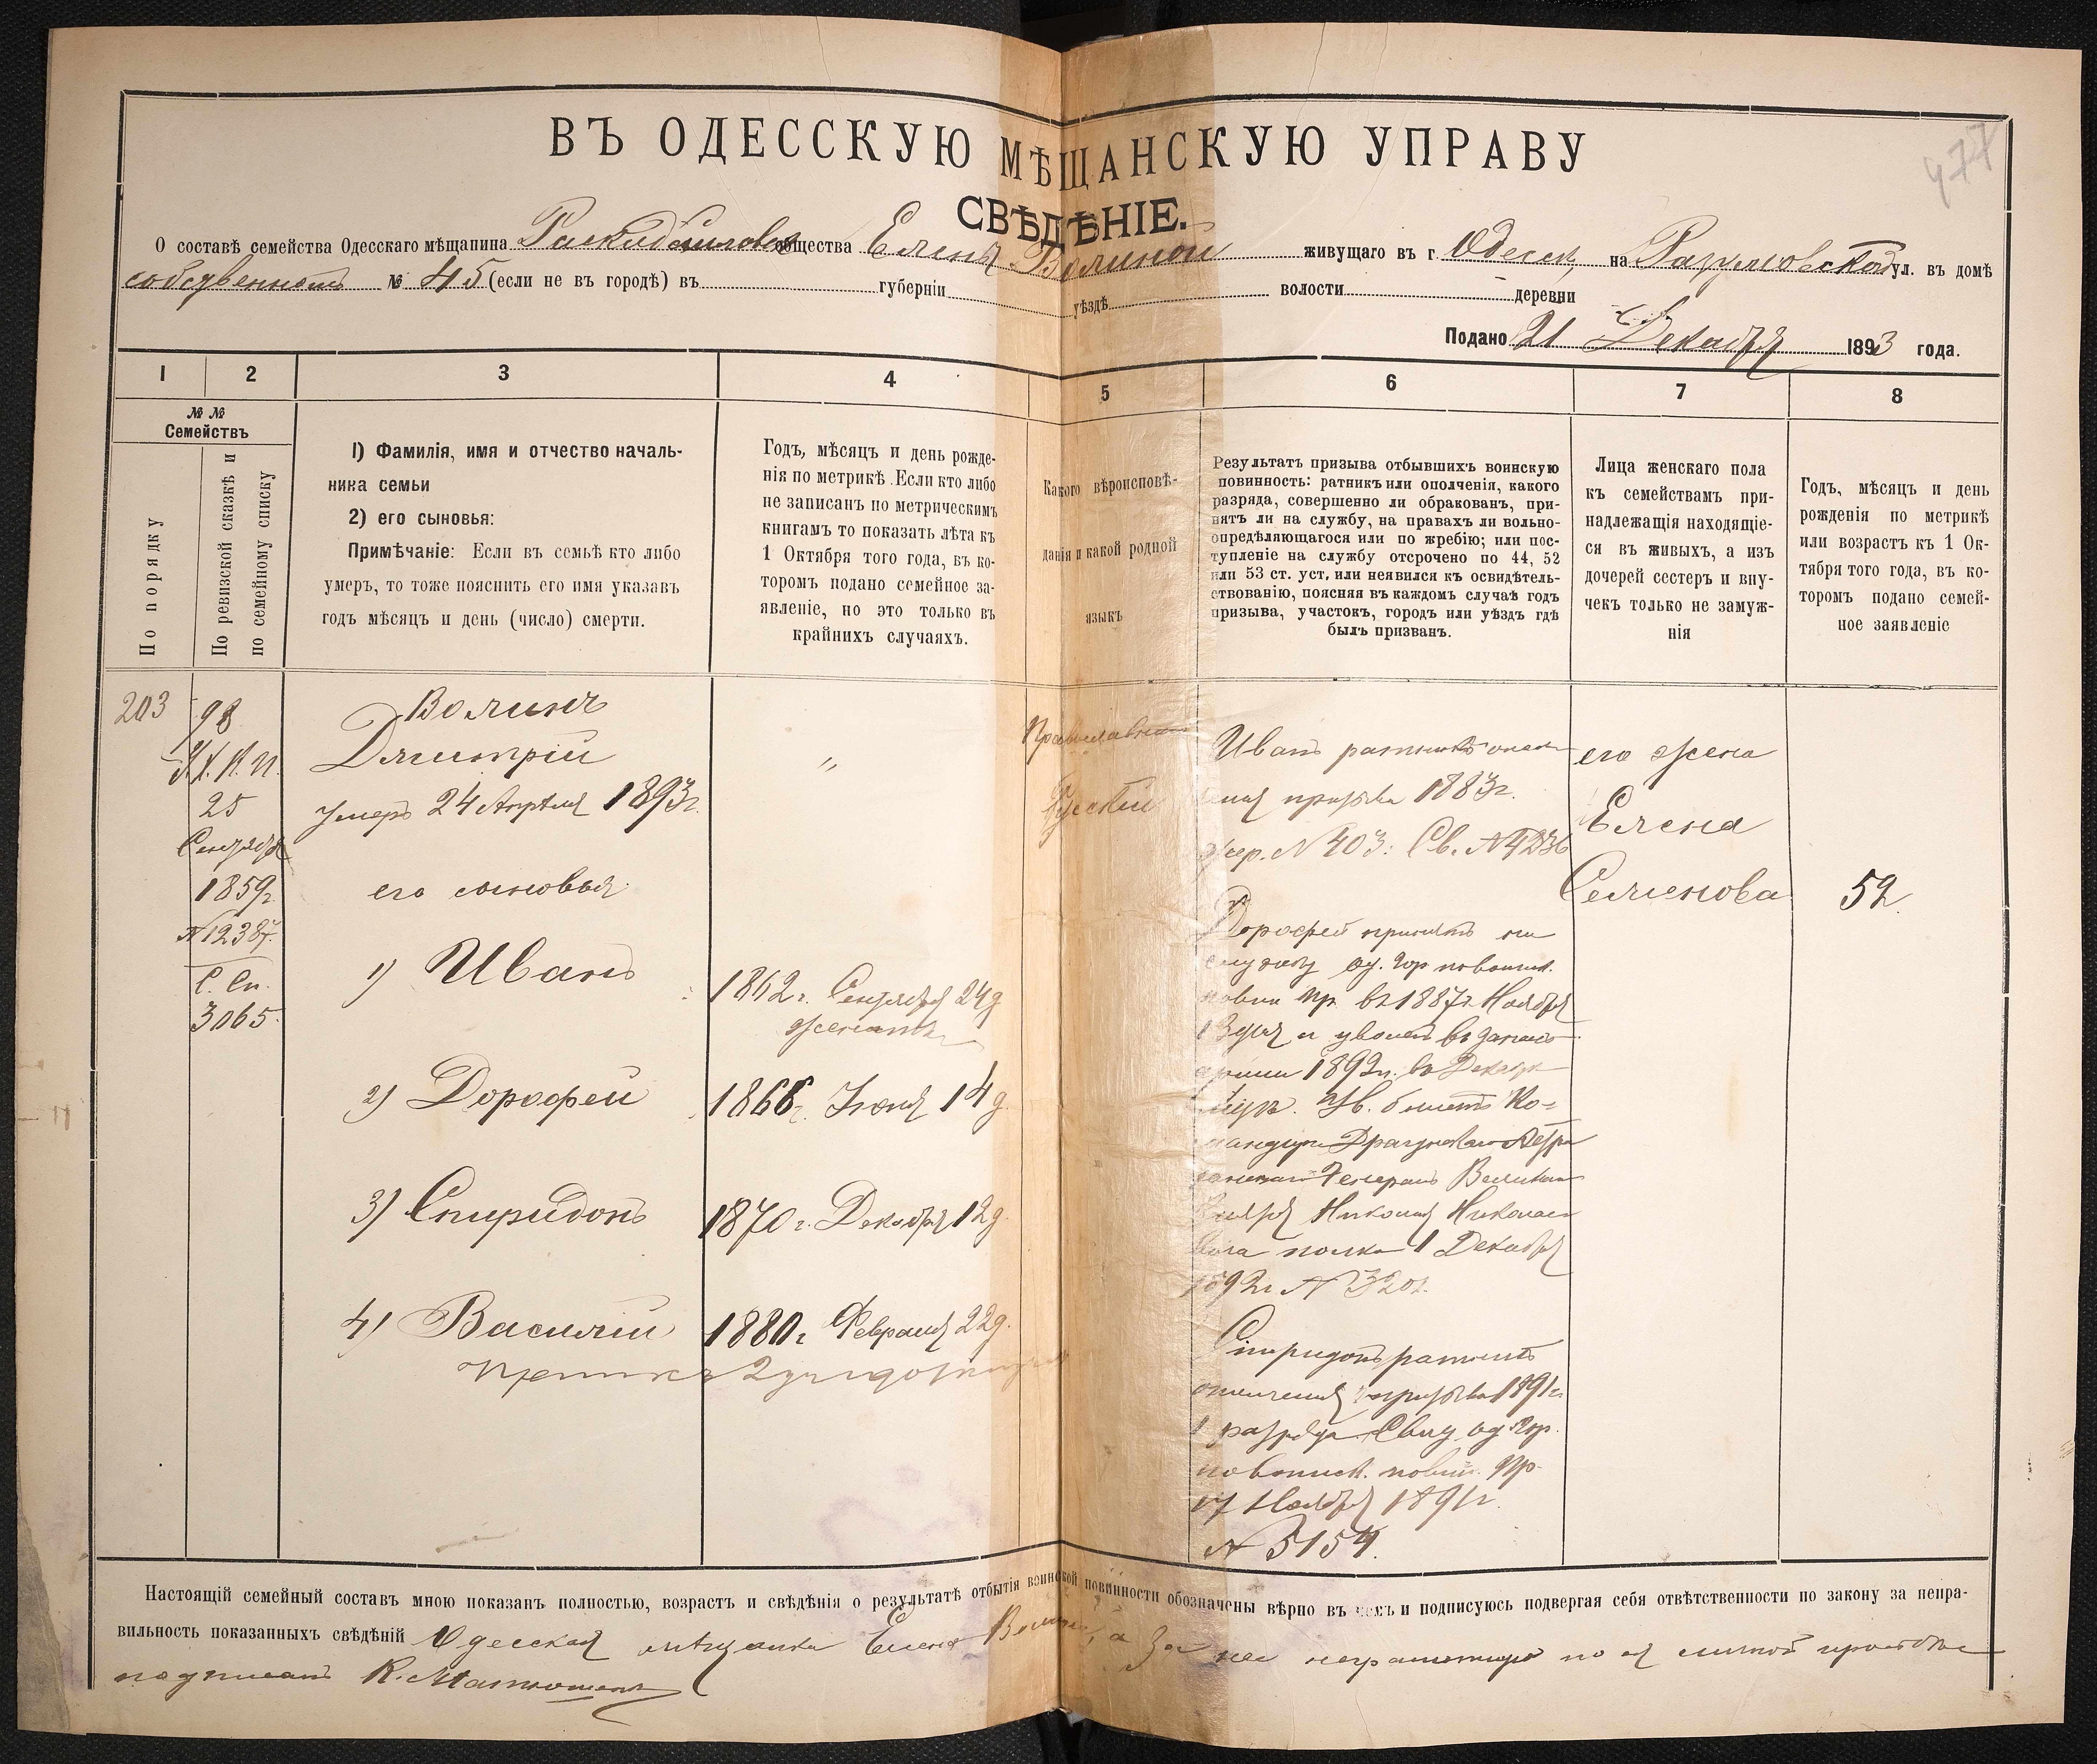 477
ВЪ ОДЕССКУЮ МѢЩАНСКУЮ УПРАВУ
СВѢДѢНІЕ.
О составѣ семейства Одесскаго мѣщанина общества Елены Волиной живущаго въ г. Одессѣ, на Разумовской ул. въ домѣ
собственномъ № 45 (если не въ городѣ) въ губерніи уѣздѣ волости деревни
Подано 21 Декабря 1893 года.
1 2 3 4 5 6 7 8
№ №
Семействъ
По порядку
По ревизской сказкѣ и
по семейному списку
1) Фамилія, имя и отчество началь-
ника семьи
2) его сыновья:
Примѣчаніе: Если въ семьѣ кто либо
умеръ, то тоже пояснить его имя указавъ
годъ мѣсяцъ и день (число) смерти.
Годъ, мѣсяцъ и день рожде-
нія по метрикѣ. Если кто либо
не записанъ по метрическимъ
книгамъ то показать лѣта къ
1 Октября того года, въ ко-
торомъ подано семейное за-
явленіе, но это только въ
крайнихъ случаяхъ.
Какого вѣроисповѣ-
данія и какой родной
языкъ
Результатъ призыва отбывшихъ воинскую
повинность: ратникъ или ополченія, какого
разряда, совершенно ли обракованъ, при-
нятъ ли на службу, на правахъ ли вольно-
опредѣляющагося или по жребію; или пос-
тупленіе на службу отсрочено по 44, 52
или 53 ст. уст. или неявился къ освидѣтель-
ствованію, поясняя въ каждомъ случаѣ годъ
призыва, участокъ, городъ или уѣздъ гдѣ
былъ призванъ.
Лица женскаго пола
къ семействамъ при-
надлежащія находящіе-
ся въ живыхъ, а изъ
дочерей сестеръ и вну-
чекъ только не замуж-
нія
Годъ, мѣсяцъ и день
рожденія по метрикѣ
или возрастъ къ 1 Ок-
тября того года, въ ко-
торомъ подано семей-
ное заявленіе
203
98
25
Сентября
1859г.
№12387.
С. Сп.
3065.
Волинъ
Дмитрій
умеръ 24 Апрѣля 1893г.
его сыновья
1) Иванъ
2) Дорофей
3) Спиридонъ
4) Василій
"
1862г. Сентября 24д
женатъ
1866г. Іюня 14д.
1870г. Декабря 12д.
1880г. Февраля 22д.
Православнаго
Русскій
Иванъ ратникъ опол-
ченія призыва 1883г.
жер. №403: Св. №4236
Дорофей принятъ на
службу Од. Гор по воинск.
повин. Пр. въ 1887г. Ноября
13 дня и уволенъ въ запасъ
арміи 1892г. въ Декабрѣ
Ув. билетъ Ко-
мандира Драгунскаго Астра
ханскаго Генерала Великаго
Князя Николая Николае-
вича полка 1 Декабря
1892г. № 3201.
Спиридонъ ратникъ
ополченія призыва 1891г.
1 разряда Свид. Од. Гор.
по воинск. повин. Пр.
17 Ноября 1891г.
№ 5154.
его жена
Елена
Семенова
52.
Настоящій семейный составъ мною показанъ полностью, возрастъ и свѣдѣнія о результатѣ отбытія воинской повинности обозначены вѣрно въ чемъ и подписуюсь подвергая себя отвѣтственности по закону за непра-
вильность показанныхъ свѣдѣній Одесская мѣщанка Елена Волина, а за нее неграмотную по ея личной просьбѣ
подписалъ К. Матюшенко